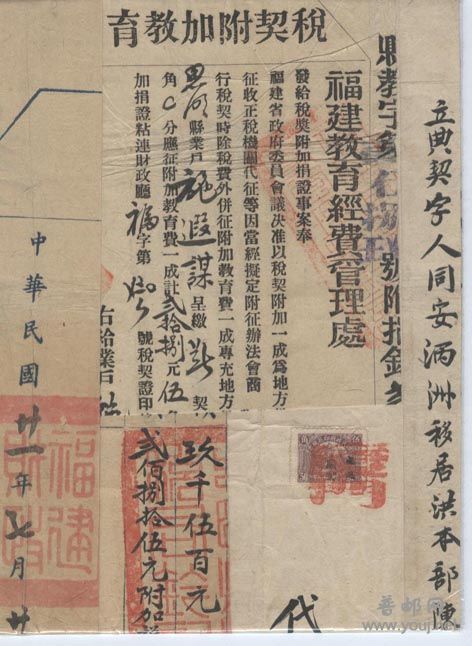 立典契字人同安浯洲移居洪本部陳
育教加附契稅
縣教字第
號附捐錄
福建教育經費管理處
發給稅契附加捐證事案奉
福建省政府委員會議決准以稅契附加一成為地方
征收正稅機關代征等因當經擬定附征辦法會商
行稅契時除稅費外併征附加教育費一成專充地方
思明縣業戶施遐謀呈繳 契
角〇分應征附加教育費一成計弍拾捌元伍
加捐證粘連財政廳福字第 號稅契證印
右給業戶
中華民國廿一年七月廿
福建
財政
玖千伍百元
弍佰捌拾伍元附加
代
普邮网
www.youj.net